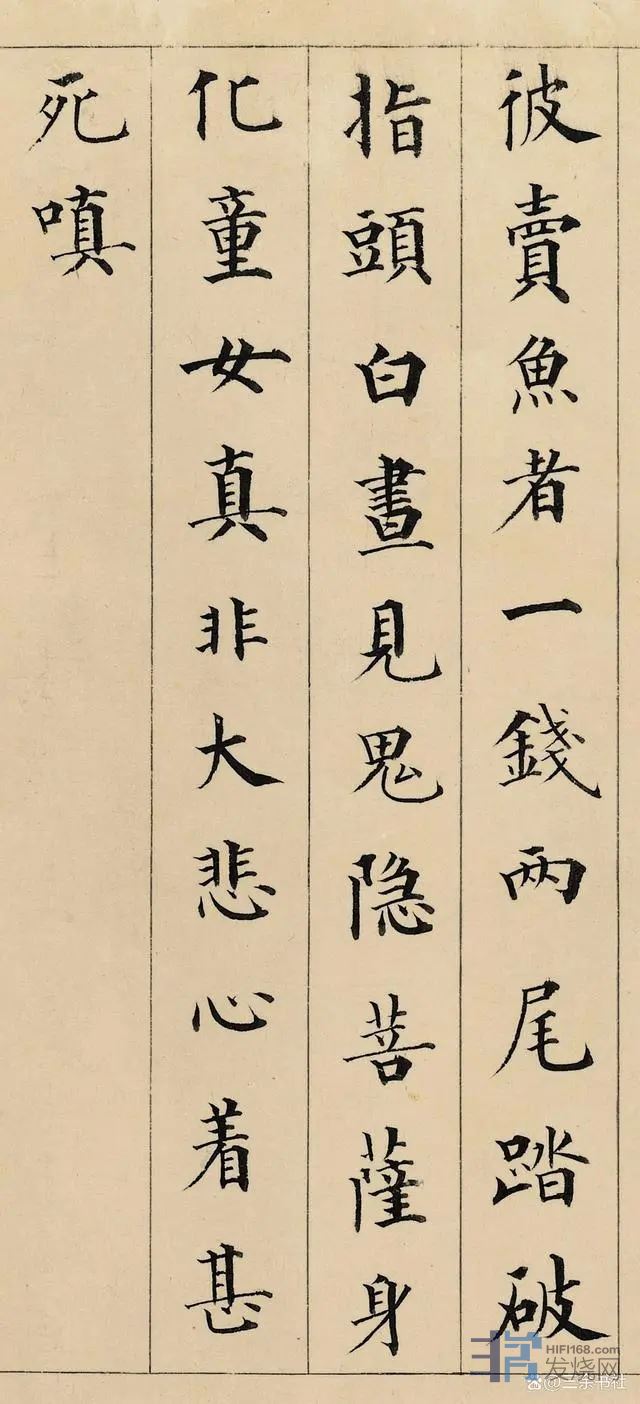 彼賣魚者一錢两尾踏破
指頭白晝見鬼隐菩薩身
化童女真非大悲心着甚
死嗔
HIFI168.com
发烧网
@三余书社